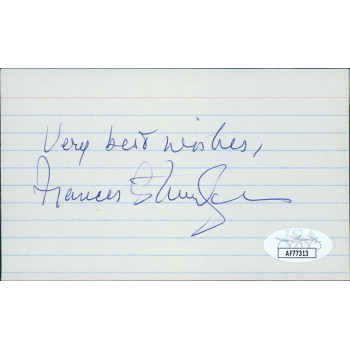 Very best wishes,
Frances
AF77313